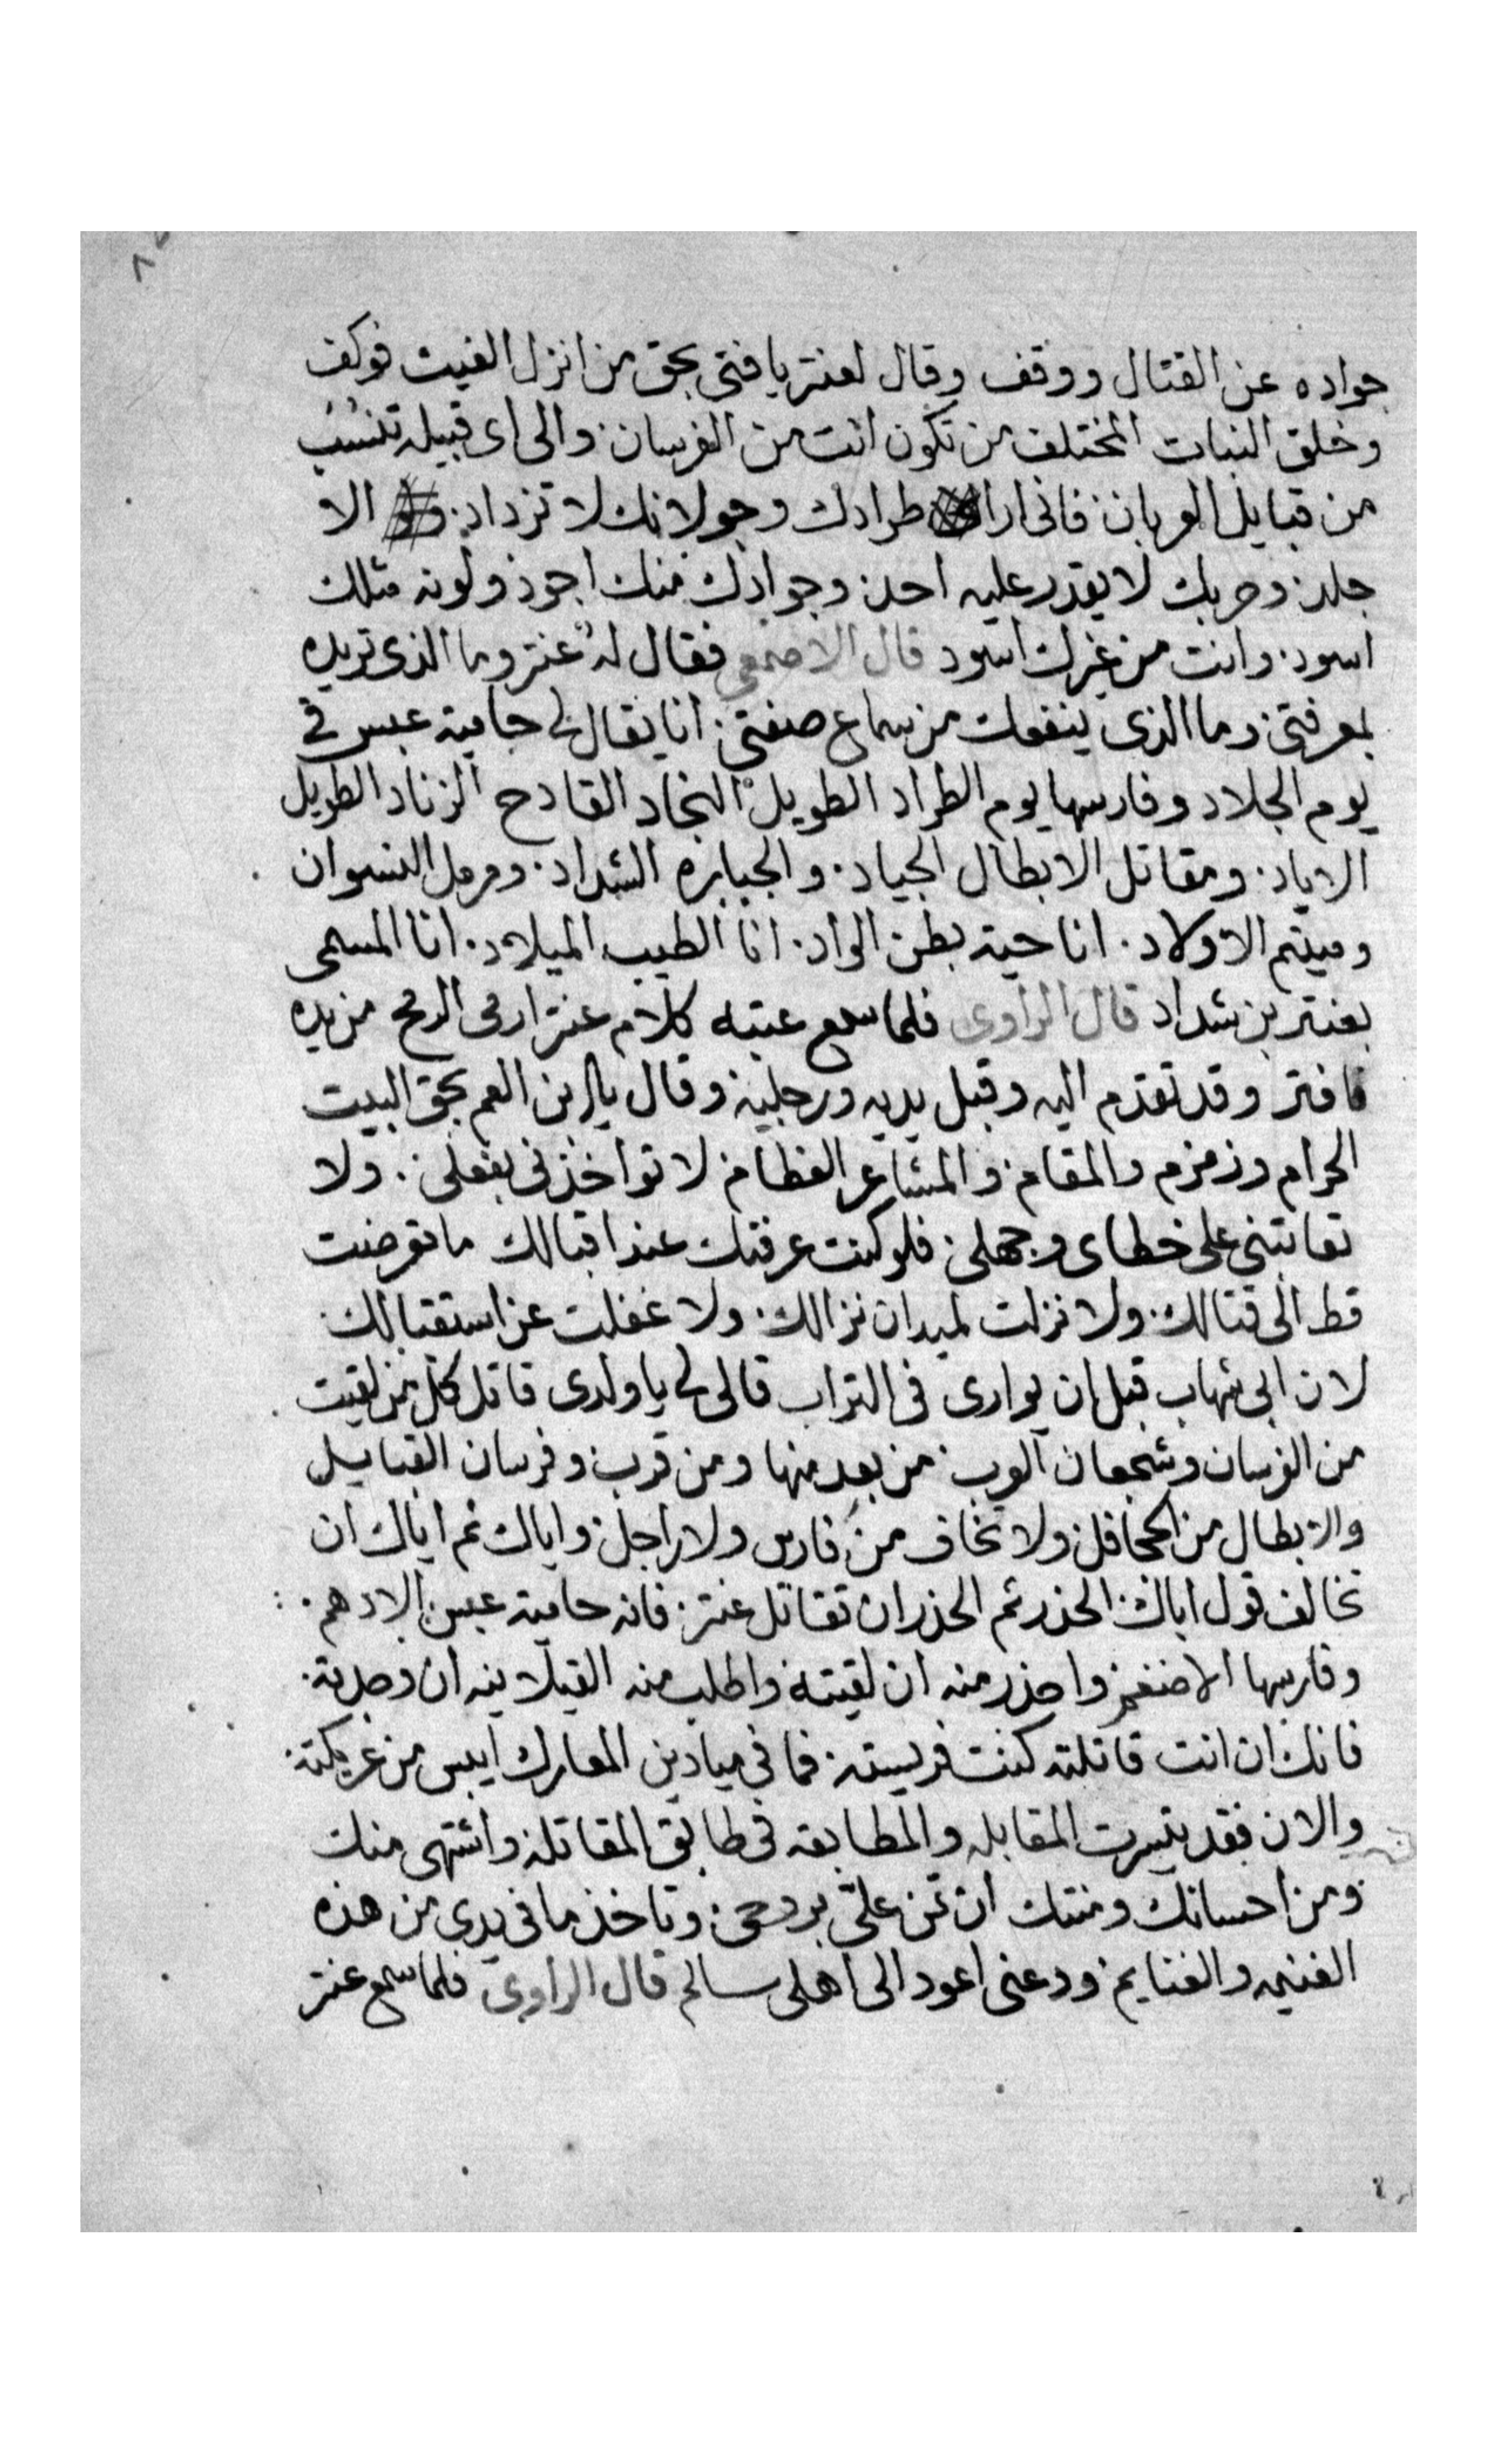 جواده عن القتال ووقف وقال لعنتر يا فتى بحق من انزل الغيث فوكف
وخلق النبات المختلف من تكون انت من الفرسان والى اى قبيله تنسب
من قبايل العربان فانى ارا طرادك وجولانك لا تزداد الا
جلد وحربك لا يقدر عليه احد وجوادك منك اجود ولونه مثلك
اسود وانت من غيرك اسود قال الاصمعى فقال له عنتر وما الذى تريده
بمعرفتى وما الذى ينفعك من سماع صفتى انا يقال لى حامية عبس فى
يوم الجلاد وفارسها يوم الطراد الطويل النجاد القادح الزناد الطويل
الاياد ومقاتل الابطال الجياد والجبابره الشداد ومرمل النسوان
وميتم الاولاد انا حية بطن الواد انا الطيب الميلاد انا المسمى
بعنتر بن شداد قال الراوى فلما سمع عتبه كلام عنتر ارمى الرمح من يده
وقد تقدم اليه وقبل يديه ورجليه وقال يا ابن العم بحق البيت
الحرام وزمزم والمقام والمشاعر العظام لا تواخذنى بفعلى ولا
تعاتبنى على خطاى وجهلى فلو كنت عرفتك عند اقبالك ما تعرضت
قط الى قتالك ولا نزلت لميدان نزالك ولا غفلت عن استقبالك
لان ابى شهاب قبل ان يوارى فى التراب قال لى يا ولدى قاتل كل من لقيت
من الفرسان وشجعان العرب من بعد منها ومن قرب وفرسان القبايل
والابطال من الجحافل ولا تخاف من فارس ولا راجل واياك ثم اياك ان
تخالف قول اباك الحذر ثم الحذر ان تقاتل عنتر فانه حامية عبس الادهم
وفارسها واحذر منه ان لقيته واطلب منه ان وجدته
فانك ان انت قاتلته كنت فريسته فما فى ميادين المعارك ايبس من عريكته
والان فقد تيسرت المقابله والمطابقه فى طابق المقاتله واشتهى منك
ومن احسانك ومنتك ان تمن على بروحى وتاخذ ما فى يدى من هذه
الغنيمه والغنايم ودعنى اعود الى اهلى سالم قال الراوى فلما سمع عنتر